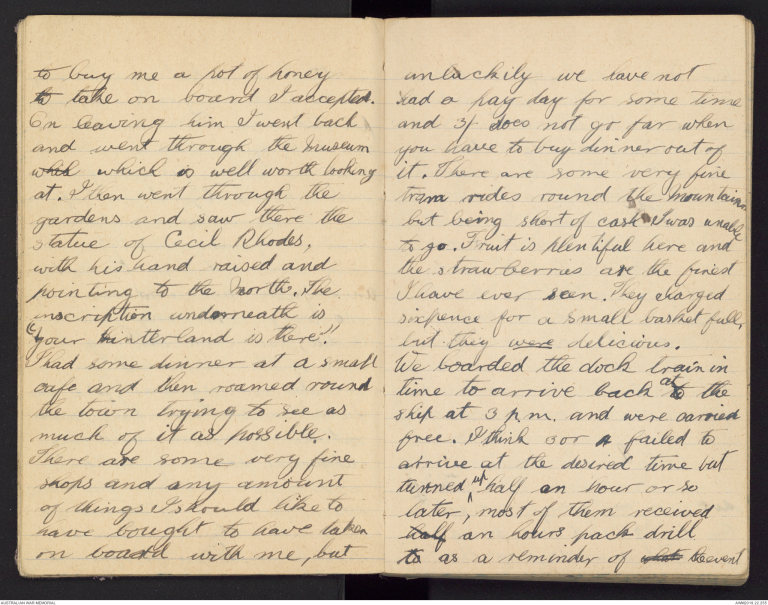 to buy me a pot of honey
to take on board I accepted.
On leaving him I went back
and went through the Museum
which which is well worth looking
at. I then went through the
gardens and saw there the
statue of Cecil Rhodes,
with his hand raised and
pointing to the North. The
inscription underneath is
"your hinterland is there".
I had some dinner at a small
cafe and then roamed round
the town trying to see as
much of it as possible.
There are some very fine
shops and any amount
of things I should like to
have bought to have taken
on board with me, but
unluckily we have not
had a pay day for some time
and 3/- does not go far when
you have to buy dinner out of
it. There are some very fine
tram rides round the mountains
but being short of cash I was unable
to go. Fruit is plentiful here and
the strawberries are the finest
I have ever seen. They charged
sixpence for a small basket full,
but they were delicious.
We boarded the dock train in
time to arrive back at the
ship at 3 p.m. and were carried
free. I think 3 or 4 failed to
arrive at the desired time but
turned up half an hour or so
later, most of them received
half an hours pack drill
to as a reminder of what the event
AUSTRALIAN WAR MEMORIAL